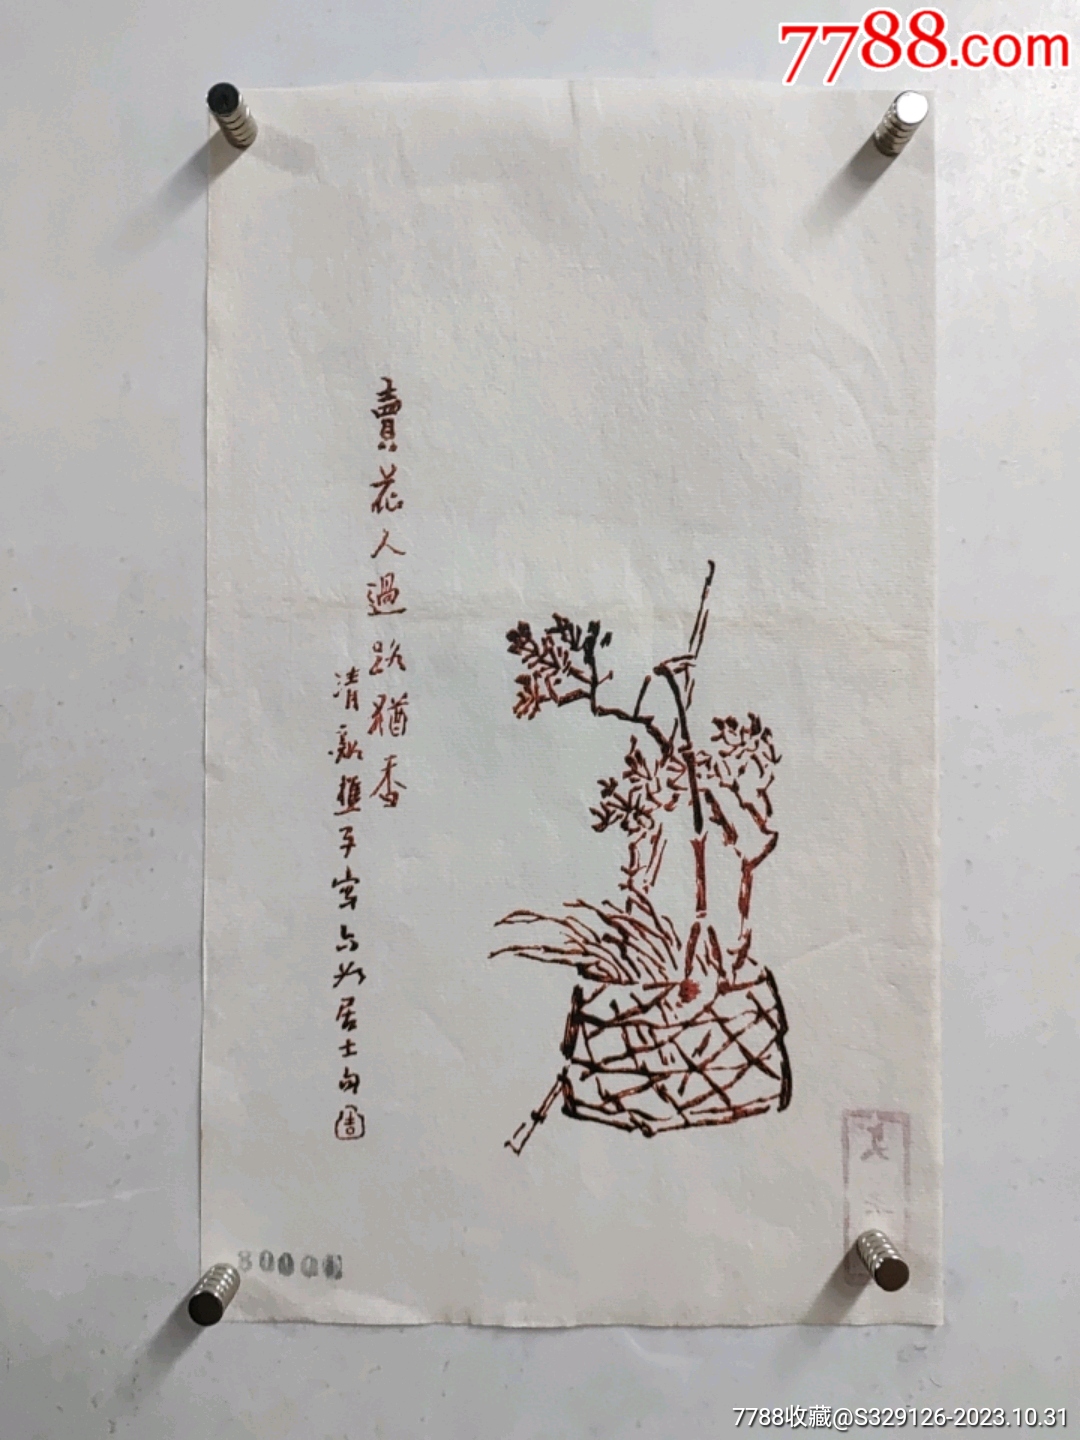 7788.com
賣花人過路猶香
清谿樵子寫六如居士句
吉
7788收藏@S329126-2023.10.31